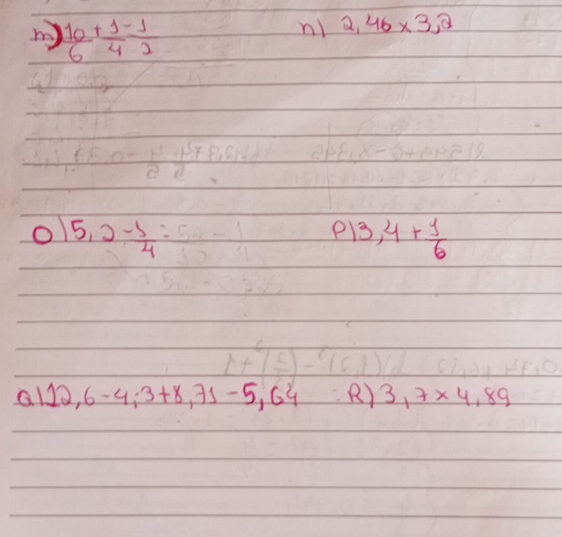 m) 10/6 + 1/4 - 1/2
n) 2,46 x 3,2
O) 5,2 - 1/4 =
P) 3,4 + 1/6
Q) 12,6 - 4,3 + 8,71 - 5,64
R) 3,7 x 4,89